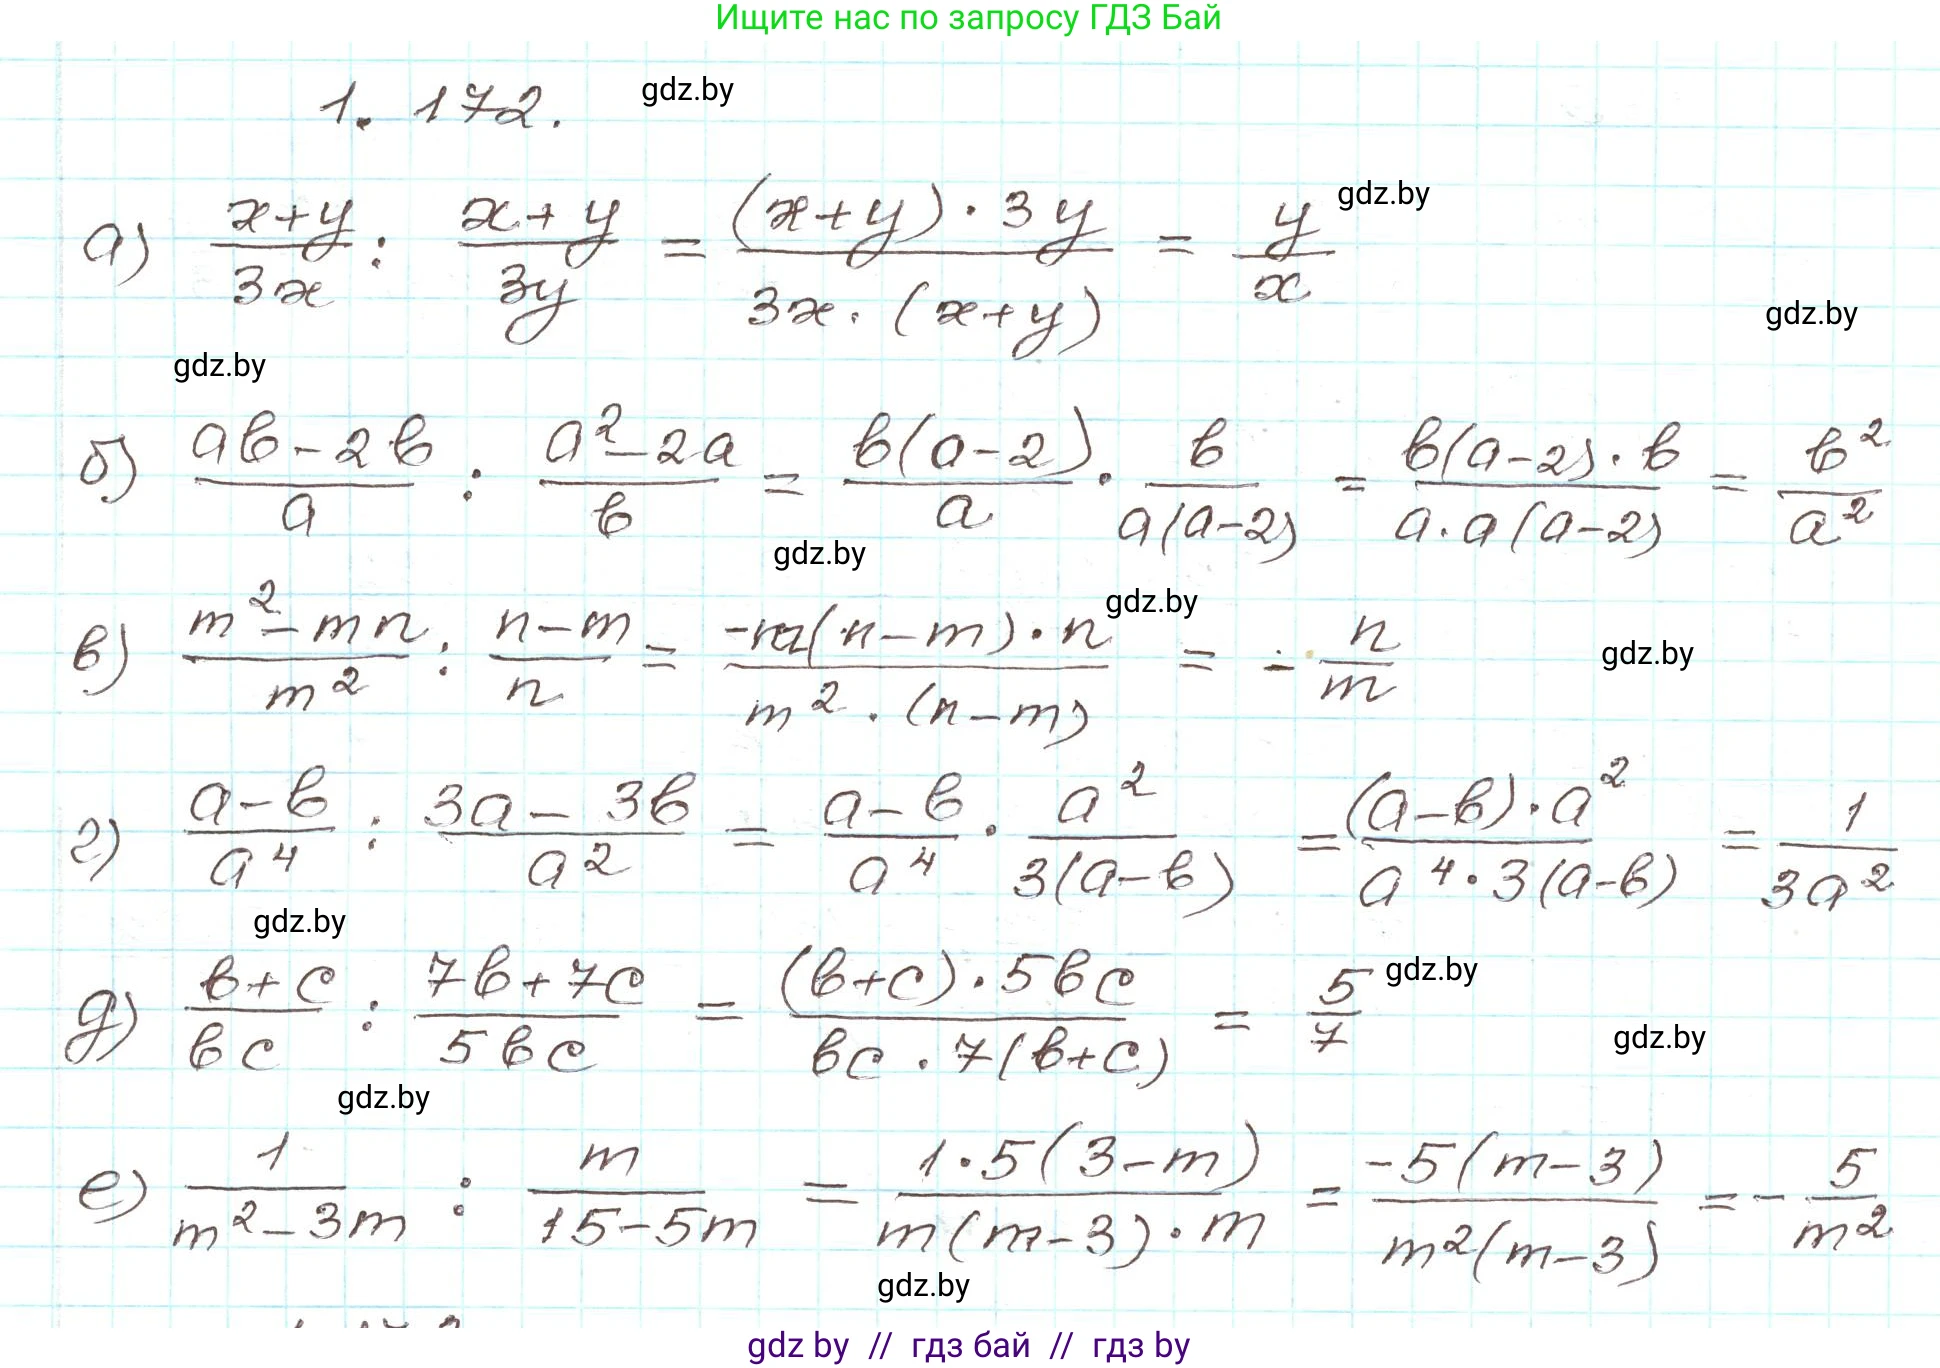 Ищите нас по запросу ГДЗ Бай
1.172. gdz.by
а) (x+y)/(3x) : (x+y)/(3y) = ((x+y)·3y)/(3x·(x+y)) = y/x gdz.by
gdz.by
gdz.by
б) (ab-2b)/a : (a²-2a)/b = (b(a-2))/a · b/(a(a-2)) = (b(a-2)·b)/(a·a(a-2)) = b²/a²
gdz.by
gdz.by
в) (m²-mn)/m² : (n-m)/n = (-m(n-m)·n)/(m²·(n-m)) = -n/m gdz.by
г) (a-b)/a⁴ : (3a-3b)/a² = (a-b)/a⁴ · a²/(3(a-b)) = ((a-b)·a²)/(a⁴·3(a-b)) = 1/(3a²)
gdz.by
д) (b+c)/(bc) : (7b+7c)/(5bc) = ((b+c)·5bc)/(bc·7(b+c)) = 5/7 gdz.by
gdz.by
gdz.by
е) 1/(m²-3m) : m/(15-5m) = (1·5(3-m))/(m(m-3)·m) = (-5(m-3))/(m²(m-3)) = -5/m²
gdz.by
gdz by // гдз бай // гдз by